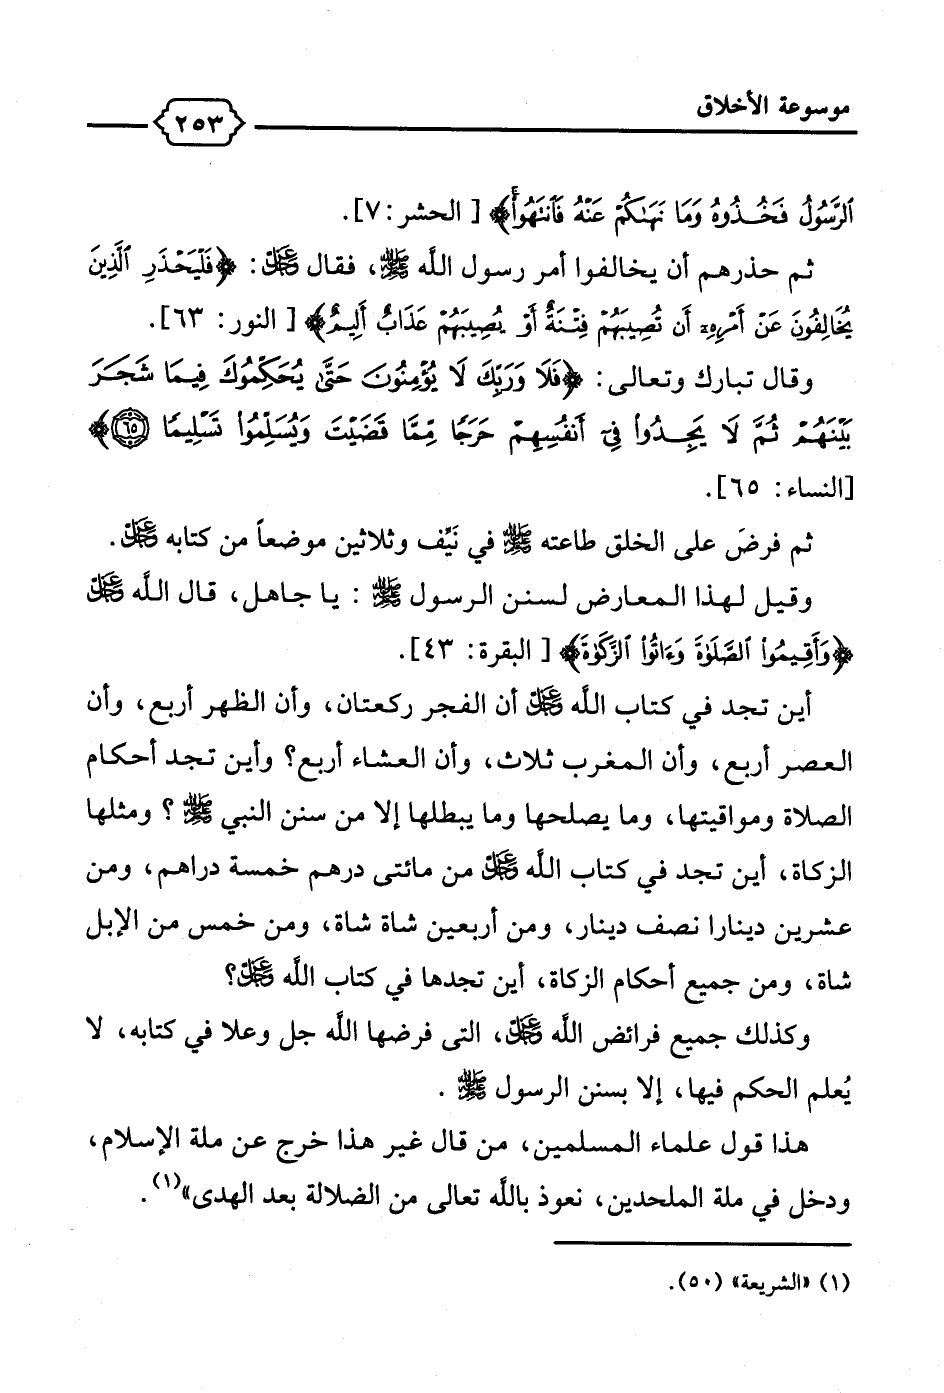 موسوعة الأخلاق
٢٥٣
ٱلرَّسُولُ فَخُـذُوهُ وَمَا نَهَىٰكُمْ عَنْهُ فَٱنتَهُوا۟ۚ﴾ [ الحشر : ٧].
ثم حذرهم أن يخالفوا أمر رسول اللَّه ﷺ، فقال عز وجل : ﴿فَلْيَحْذَرِ ٱلَّذِينَ
يُخَالِفُونَ عَنْ أَمْرِهِۦٓ أَن تُصِيبَهُمْ فِتْنَةٌ أَوْ يُصِيبَهُمْ عَذَابٌ أَلِيمٌ﴾ [ النور : ٦٣].
وقال تبارك وتعالى : ﴿فَلَا وَرَبِّكَ لَا يُؤْمِنُونَ حَتَّىٰ يُحَكِّمُوكَ فِيمَا شَجَرَ
بَيْنَهُمْ ثُمَّ لَا يَجِدُوا۟ فِىٓ أَنفُسِهِمْ حَرَجًا مِّمَّا قَضَيْتَ وَيُسَلِّمُوا۟ تَسْلِيمًا ٦٥﴾
[النساء : ٦٥].
ثم فرضَ على الخلق طاعته ﷺ في نَيِّف وثلاثين موضعاً من كتابه عز وجل.
وقيل لهذا المعارض لسنن الرسول ﷺ : يا جاهل، قال اللَّه عز وجل
﴿وَأَقِيمُوا۟ ٱلصَّلَوٰةَ وَءَاتُوا۟ ٱلزَّكَوٰةَ﴾ [ البقرة: ٤٣].
أين تجد في كتاب اللَّه عز وجل أن الفجر ركعتان، وأن الظهر أربع، وأن
العصر أربع، وأن المغرب ثلاث، وأن العشاء أربع؟ وأين تجد أحكام
الصلاة ومواقيتها، وما يصلحها وما يبطلها إلا من سنن النبي ﷺ ؟ ومثلها
الزكاة، أين تجد في كتاب اللَّه عز وجل من مائتى درهم خمسة دراهم، ومن
عشرين دينارا نصف دينار، ومن أربعين شاة شاة، ومن خمس من الإبل
شاة، ومن جميع أحكام الزكاة، أين تجدها في كتاب اللَّه عز وجل؟
وكذلك جميع فرائض اللَّه عز وجل، التى فرضها اللَّه جل وعلا في كتابه، لا
يُعلم الحكم فيها، إلا بسنن الرسول ﷺ .
هذا قول علماء المسلمين، من قال غير هذا خرج عن ملة الإسلام،
ودخل في ملة الملحدين، نعوذ باللَّه تعالى من الضلالة بعد الهدى»(١).
(١) «الشريعة» (٥٠).